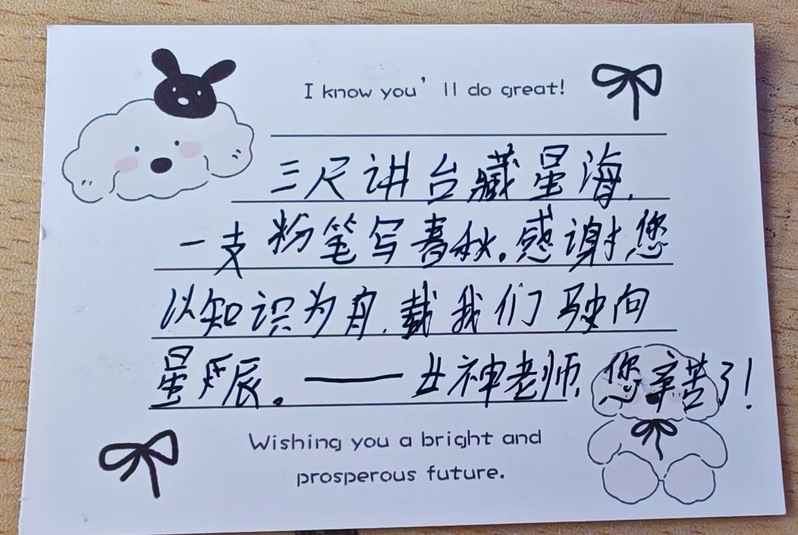 I know you'll do great!
三尺讲台藏星海，
一支粉笔写春秋。感谢您
以知识为舟，载我们驶向
星辰。——女神老师，您辛苦了！
Wishing you a bright and
prosperous future.